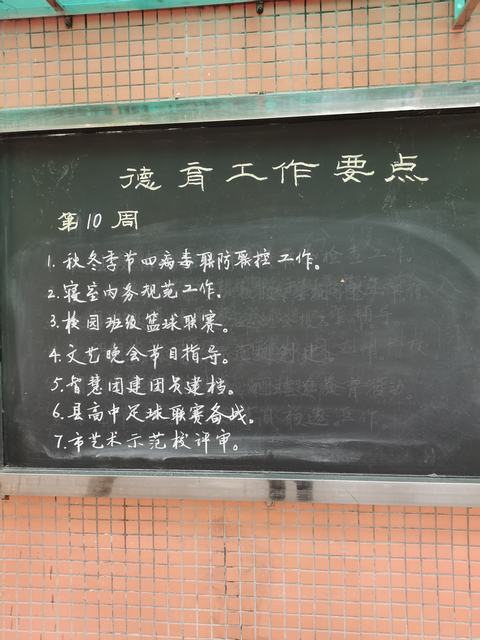 德育工作要点
第10周
1.秋冬季节四病毒联防联控工作。
2.寝室内务规范工作。
3.校园班级篮球联赛。
4.文艺晚会节目指导。
5.智慧团建团员建档。
6.县高中足球联赛备战。
7.市艺术示范校评审。